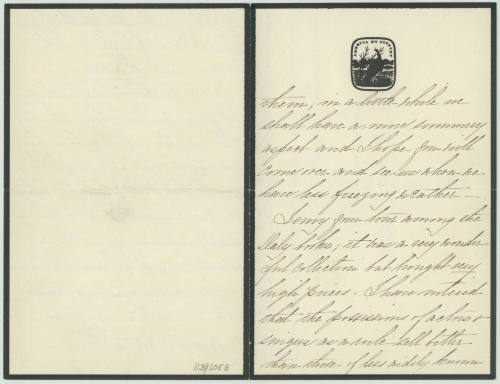 them, in a little while we
shall have a more summery
aspect and I hope you will
come over and see us when we
have less freezing weather —
I envy your tour among the
Daly books; it was a very wonder
ful collection but brought very
high prices. I have noticed
that the possessions of actors &
singers as a rule sell better
than those of less widely known
113/2058